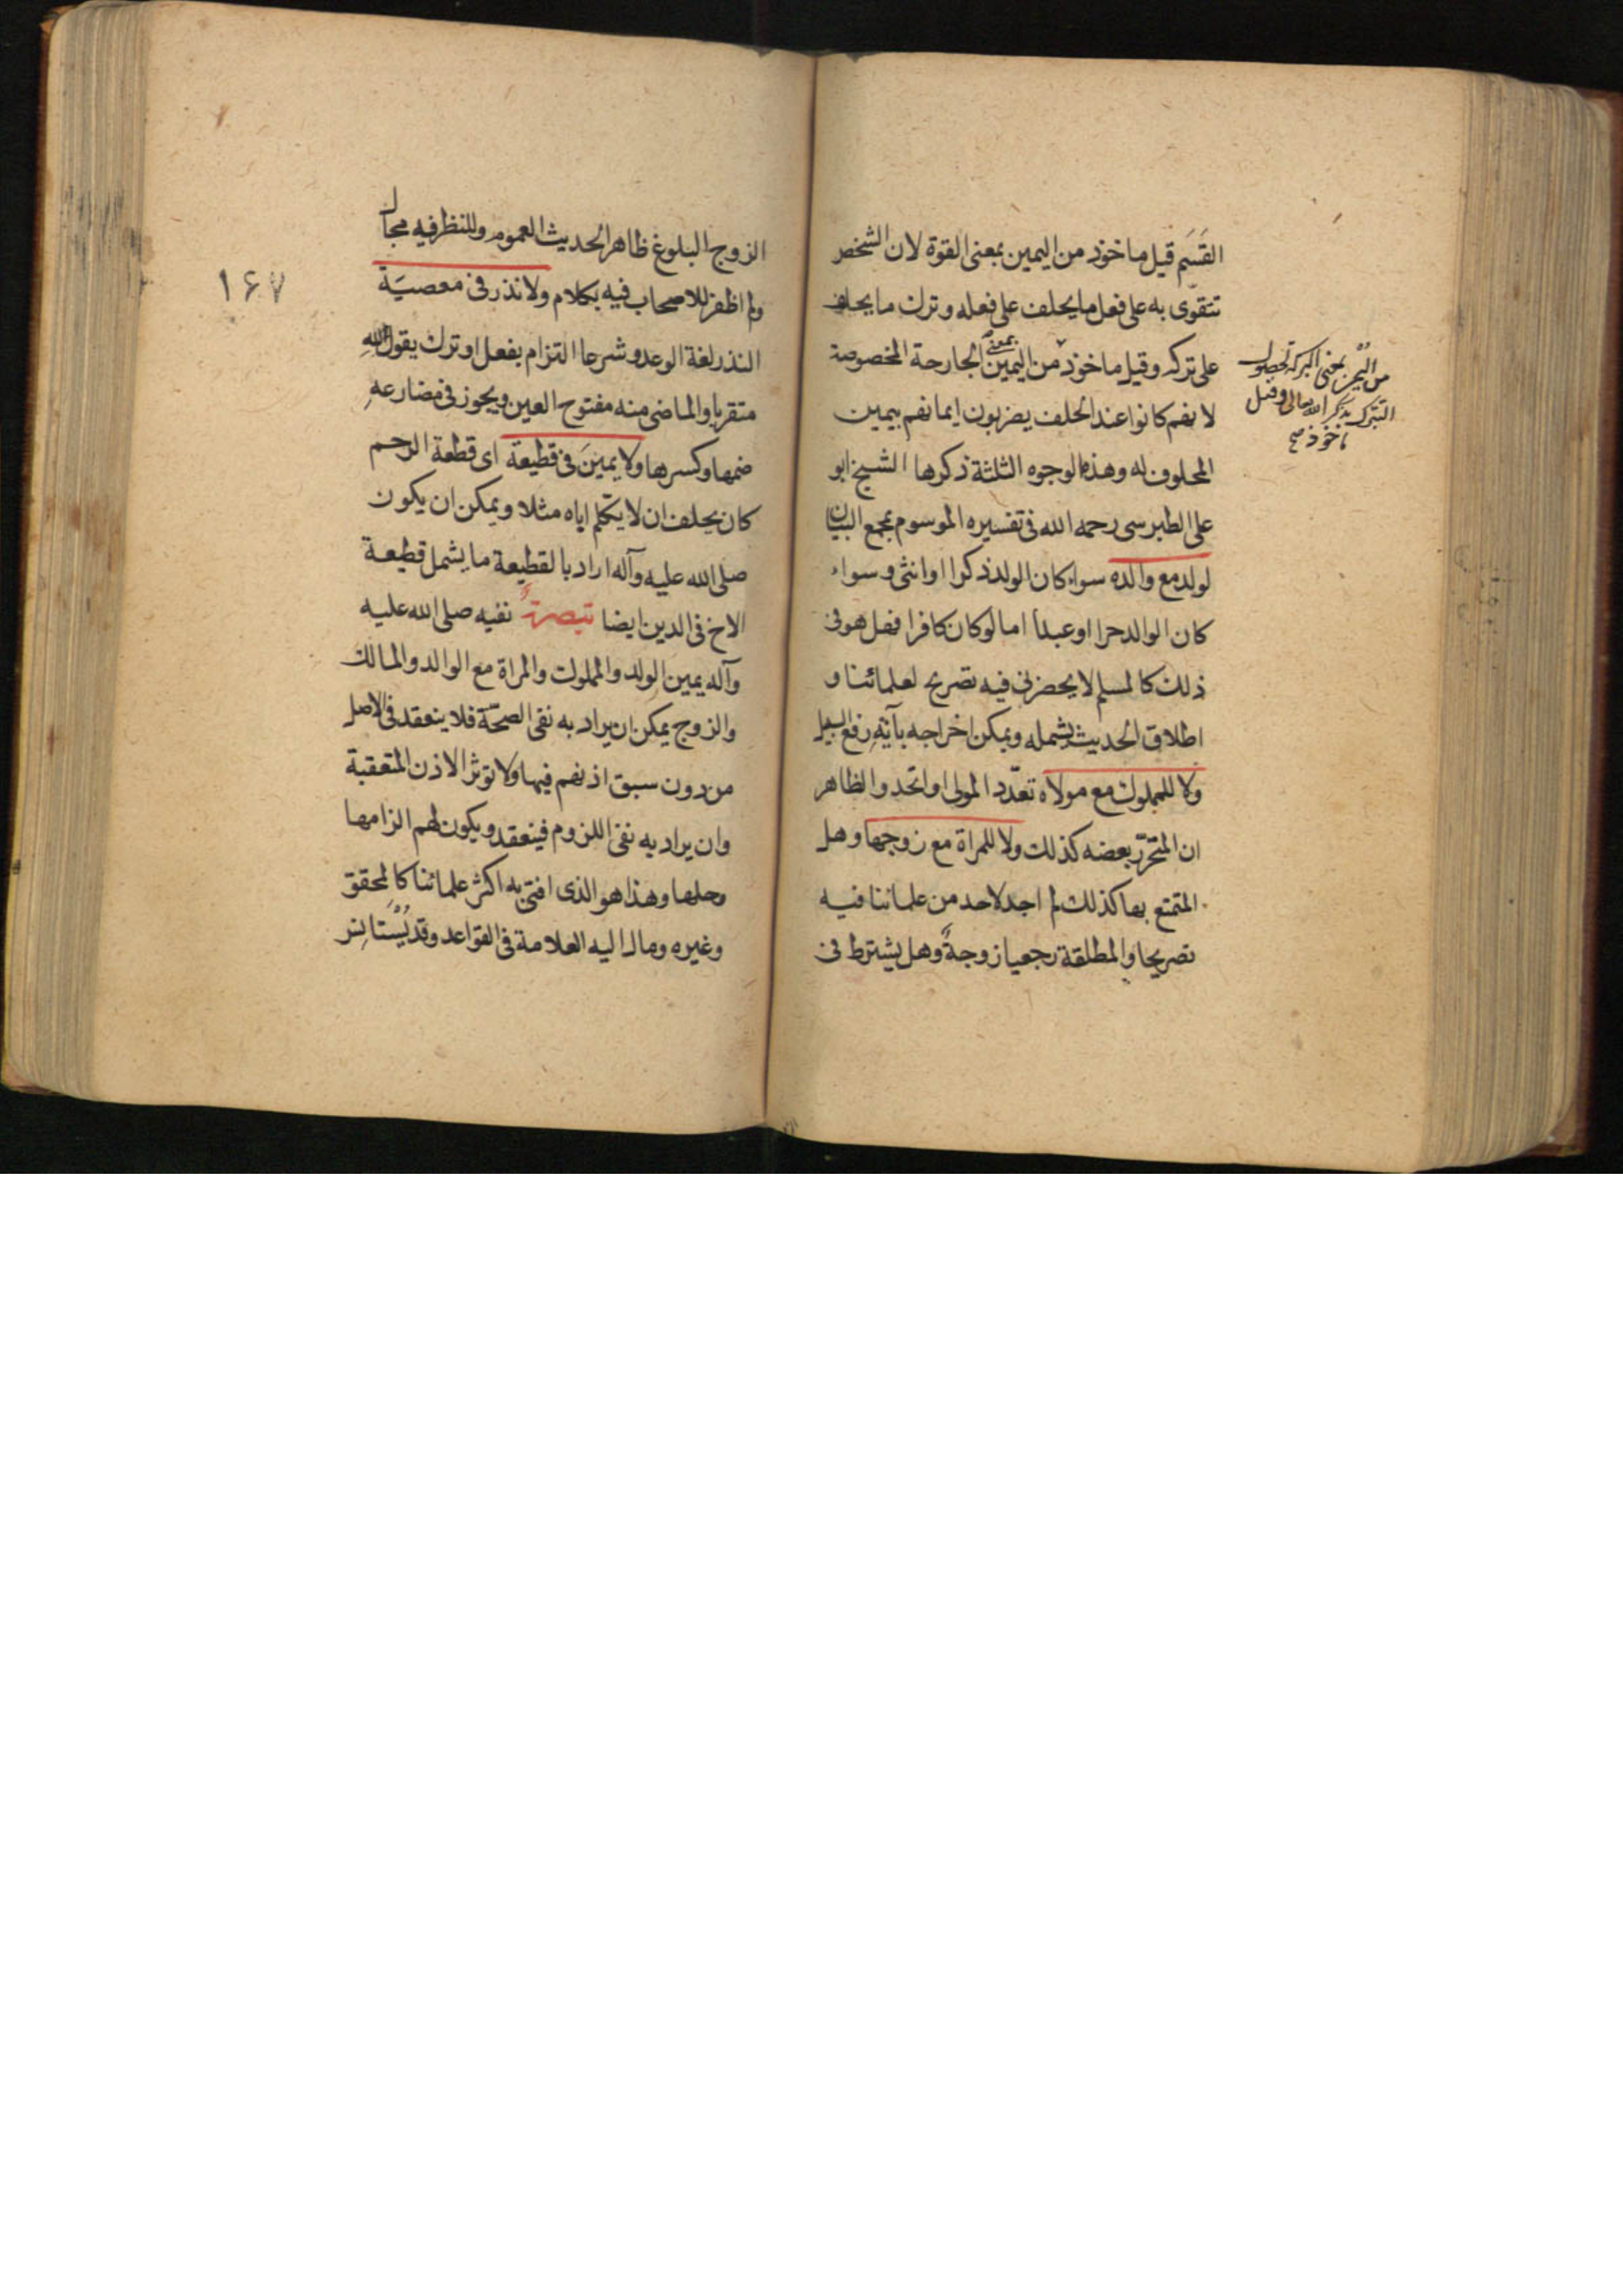 القَسَم قيل ماخوذ من اليمين بمعنى القوة لان الشخص
تتقوّى به على فعل ما يحلف على فعله وترك ما يحلف
على تركه وقيل ماخوذ من اليمين بمعنى الجارحة المخصوصة
لانهم كانوا عند الحلف يضربون ايمانهم بيمين
المحلوف له وهذه الوجوه الثلثة ذكرها الشيخ ابو
على الطبرسى رحمه الله فى تفسيره الموسوم بمجمع البيان
لولد مع والده سواء كان الولد ذكرا او انثى وسواء
كان الوالد حرا او عبدا اما لو كان كافرا فهل هو فى
ذلك كالمسلم لا يحضرنى فيه تصريح لعلمائنا و
اطلاق الحديث يشمله ويمكن اخراجه بآية رفع السبيل
ولا للمملوك مع مولاه تعدّد المولى او اتحد والظاهر
ان المتحرّر بعضه كذلك ولا للمراة مع زوجها وهل
المتمتع بها كذلك لم اجد لاحد من علمائنا فيه
تصريحا والمطلقة رجعيا زوجةٌ وهل يشترط فى
من اليُمْن بمعنى البركة لحصول
التبرك بذكر الله تعالى وقيل
ماخوذ صح
الزوج البلوغ ظاهر الحديث العموم وللنظر فيه مجال
ولم اظفر للاصحاب فيه بكلام ولا نذر فى معصيَة
١٦٧
النذر لغة الوعد وشرعا التزام بفعل او ترك يقول لله
متقربا والماضى منه مفتوح العين ويجوز فى مضارعه
ضمها وكسرها ولا يمينَ فى قطيعة اى قطعة الرحم
كان يحلف ان لا يتكلم اياه مثلا ويمكن ان يكون
صلى الله عليه وآله اراد بالقطيعة ما يشمل قطيعة
الاخ فى الدين ايضا تبصرة نفيه صلى الله عليه
وآله يمين الولد والمملوك والمراة مع الوالد والمالك
والزوج يمكن ان يراد به نفى الصحّة فلا ينعقد فى الاصل
من دون سبق اذنهم فيها ولا تؤثر الاذن المتعقبة
وان يراد به نفى اللزوم فينعقد ويكون لهم الزامها
وحلها وهذا هو الذى افتى به اكثر علمائنا كالمحقق
وغيره ومال اليه العلامة فى القواعد وقد